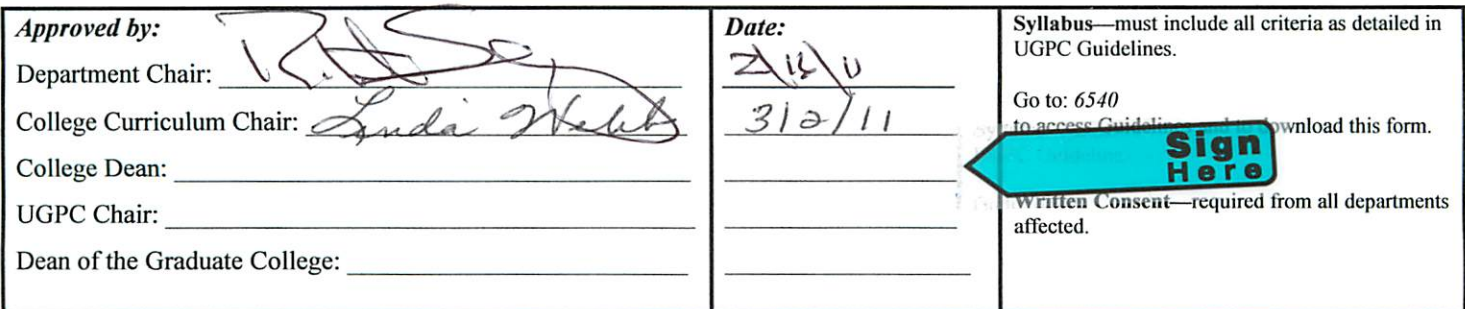 Approved by:
Department Chair:
College Curriculum Chair: Linda Webb
College Dean:
UGPC Chair:
Dean of the Graduate College:
Date:
3/2/11
Syllabus—must include all criteria as detailed in
UGPC Guidelines.
Go to: 6540
to access Guidelines and to download this form.
Sign
Here
Written Consent—required from all departments
affected.